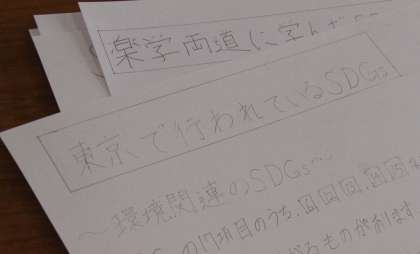 楽学両道に学んだ
東京で行われているSDGs
〜環境関連のSDGs〜
の17項目のうち、
るものがあります